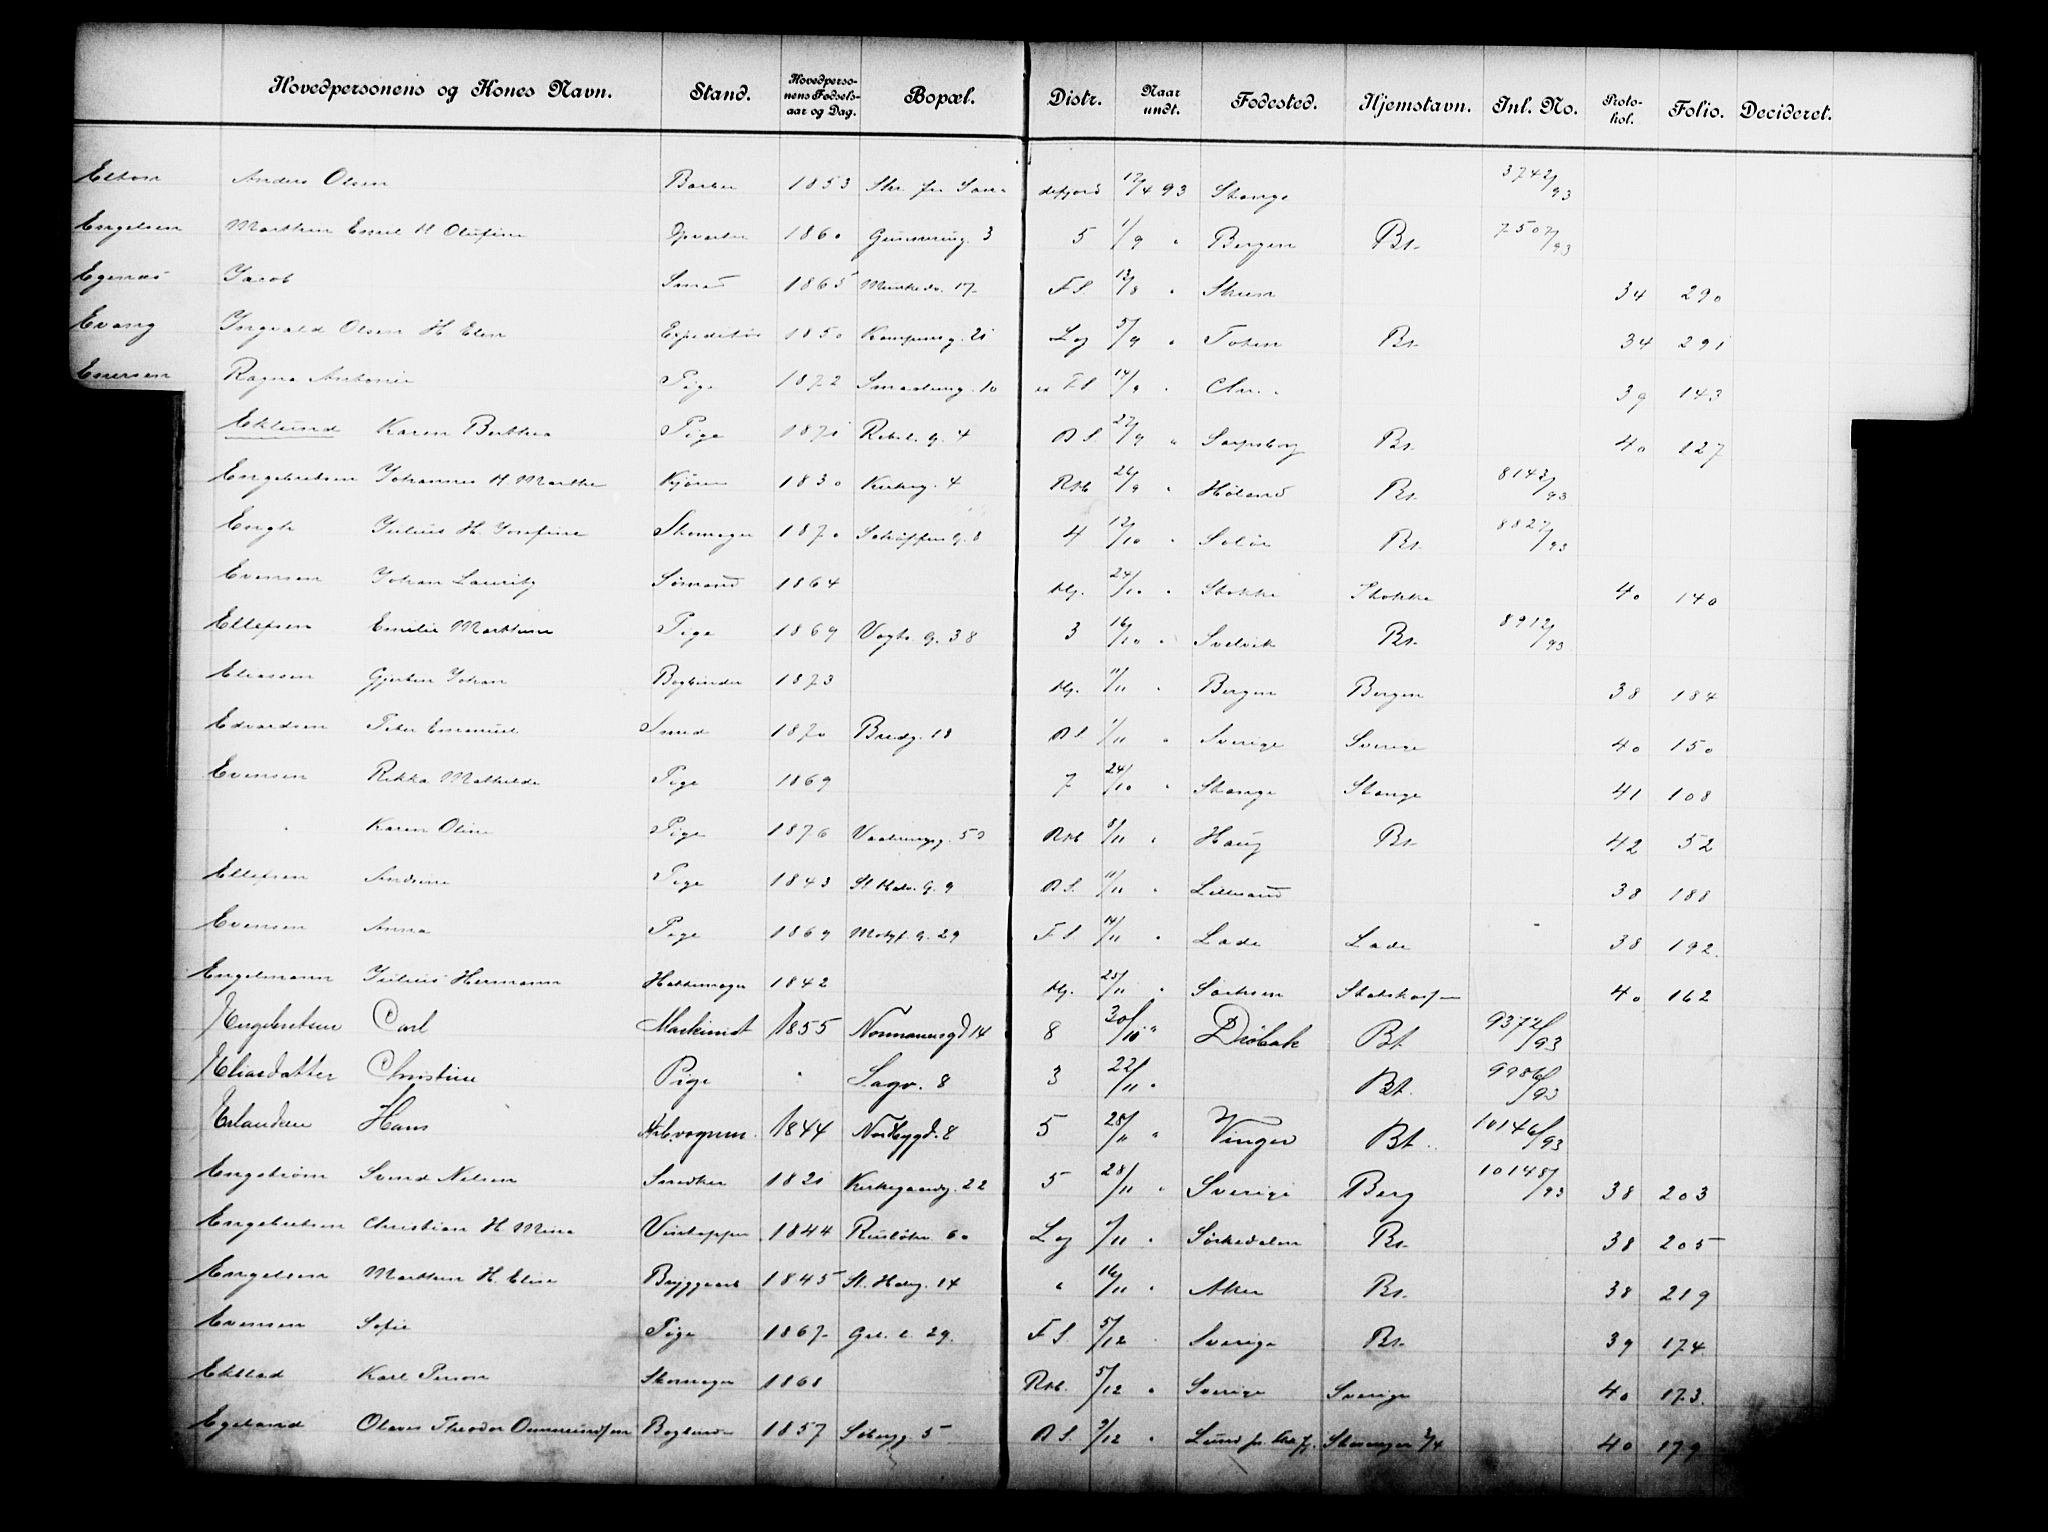 Hovedpersonens og Kones Navn. Stand. Hovedperso-nens Fødsels-aar og Dag. Bopæl. Distr. Naar undt. Fødested. Hjemstavn. Inl. No. Proto-kol. Folio. Decideret.
Anders Olsen 1853 12/4 93 Stange 3742/93
Engelsen Marthin Emil H Olufine Opvarter 1860 3 5 1/9 " Bergen Bt. 7507/93
Egenæs Jacob 1865 Munkeda. 17 F.S. 12/8 " 34 290
Evang Ingvald Olsen H Elen Expeditør 1850 Kampensg. 21 Log 5/9 " Toten Bt. 34 291
Enersen Ragna Antonie Pige 1872 10 F.S. 14/9 " Chr. " 39 143
Eklund Karen Berthea Pige 1871 4 B.S. 27/9 " Sarpsborg Bt. 40 127
Engebretsen Johannes H. Marthe 1830 Kirkeg. 4 26/9 " Høland Bt. 8143/93
Engh Julius H. Josefine Skomager 1870 8 4 12/10 " Solør Bt. 8827/93
Evensen Johan Lauritz Sømand 1864 Hj. 24/10 " Stokke Stokke 40 140
Ellefsen Emilie Marthine Pige 1869 Vogts G. 38 3 16/10 " Svelvik Bt. 8912/93
Eliassen Gjerten Johan Bogbinder 1873 Hj. 11/11 " Bergen Bergen 38 184
Edvardsen Peter Emanuel Smed 1870 Bredg. 18 B.S. 1/11 " Sverige Sverige 40 150
Evensen Rikka Mathilde Pige 1869 7 24/10 " Stange Stange 41 108
" Karen Oline Pige 1876 Vaalerengg. 50 8/11 " Haug Bt. 42 52
Ellefsen Andrine Pige 1843 St. Halv. G. 9 B.S. 11/11 " Lillesand 38 188
Evensen Anna Pige 1869 Motzf. G. 29 F.S. 14/11 " Lade Lade 38 192.
Engelmann Julius Hermann Hattemager 1842 Hj. 25/11 " Sachsen 40 162
Engebretsen Carl Maskinist 1855 Normannsgd 14 8 30/10 " Drøbak Bt. 9372/93
Eliasdatter Christine Pige " Sagv. 8 3 22/11 " Bt.
Erlandsen Hans Arbvognm. 1844 Nordbygd. 8 5 28/11 " Vinger Bt. 10146/93
Engstrøm Svend Nilsen Snedker 1821 Kirkegaardg. 22 5 28/11 " Sverige Berg 10148/93 38 203
Engebretsen Christian H. Mina Vintapper 1844 Ruseløkv. 60 Log /11 " Sørkedalen Bt. 38 205
Engelsen Marthin H. Elise Bryggearb 1845 St. Halvg. 14 " 16/11 " Aker Bt. 38 219
Evensen Sofie Pige 1867 Grl. L. 29. F.S. 5/12 " Sverige Bt. 39 174
Karl Person Skomager 1868 5/12 " Sverige Sverige 40 173.
Egeland Olaves Theodor Ommundsen Bogbinder 1857 5 B.S. 9/12 " Lund Stavanger 40 179